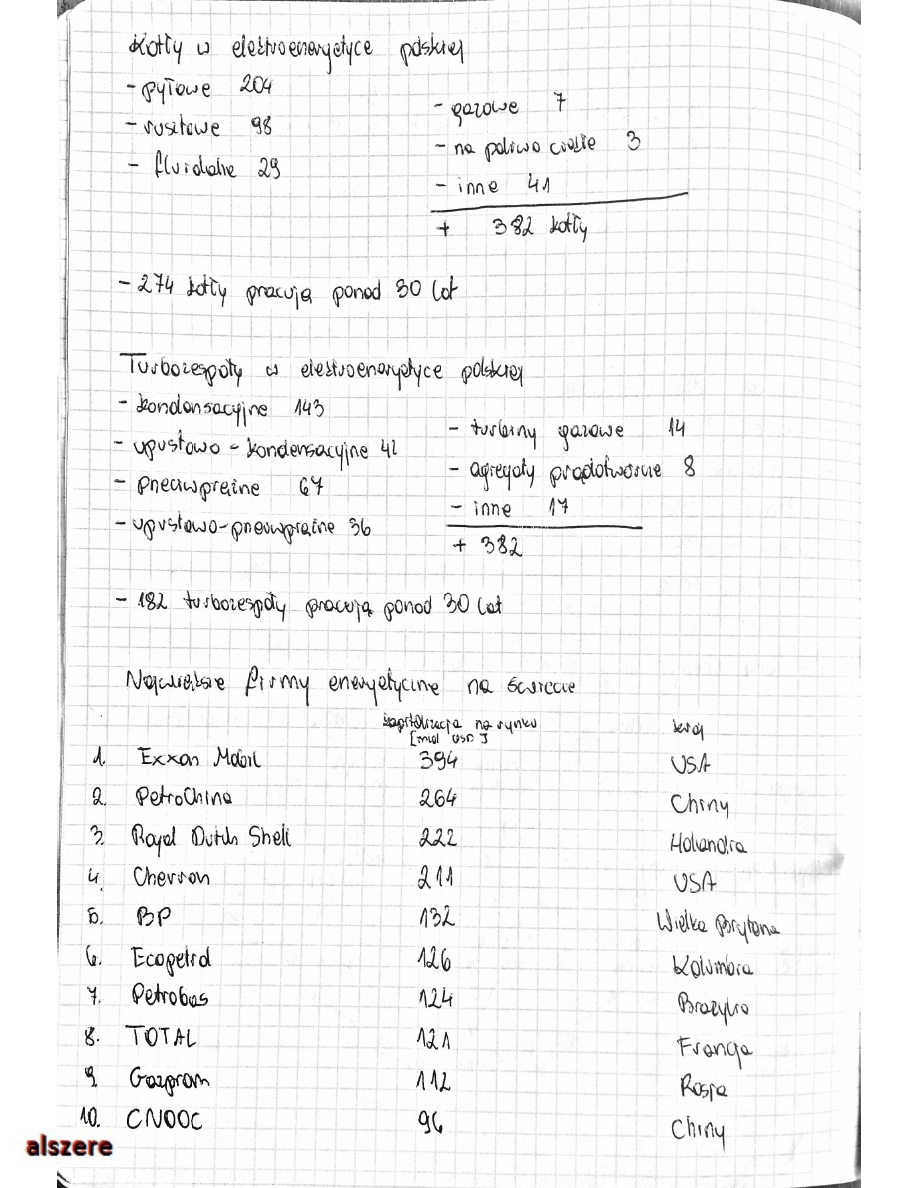 Kotły w elektroenergetyce polskiej
- pyłowe 204
- rusztowe 98
- fluidalne 29
- gazowe 7
- na paliwo ciekłe 3
- inne 41
+ 382 kotły
- 274 kotły pracują ponad 30 lat
Turbozespoły w elektroenergetyce polskiej
- kondensacyjne 143
- upustowo - kondensacyjne 42
- przeciwprężne 67
- upustowo-przeciwprężne 36
- turbiny gazowe 14
- agregaty prądotwórcze 8
- inne 17
+ 382
- 182 turbozespoły pracują ponad 30 lat
Największe firmy energetyczne na świecie
kapitalizacja na rynku kraj
[mld USD]
1. Exxon Mobil 394 USA
2. PetroChina 264 Chiny
3. Royal Dutch Shell 222 Holandia
4. Chevron 211 USA
5. BP 132 Wielka Brytania
6. Ecopetrol 126 Kolumbia
7. Petrobas 124 Brazylia
8. TOTAL 121 Francja
9. Gazprom 112 Rosja
10. CNOOC 96 Chiny
alszere